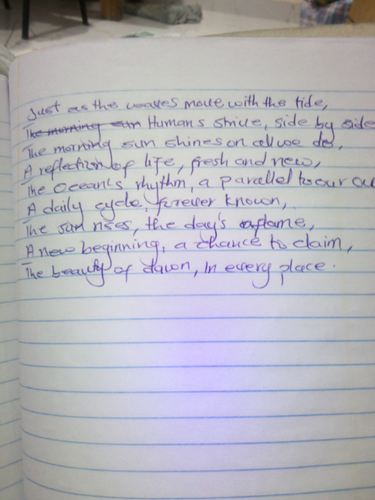 Just as the waves move with the tide,
The morning sun Humans strive, side by side
The morning sun shines on all we do,
A reflection of life, fresh and new,
The Ocean's rhythm, a parallel to our
A daily cycle, forever known,
The sun rises, the day's aflame,
A new beginning, a chance to claim,
The beauty of dawn, in every place.